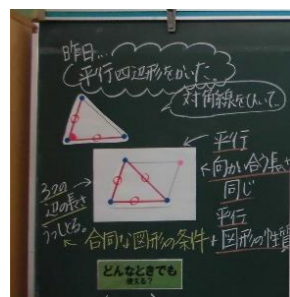 昨日…
平行四辺形をかいた。
対角線をひいて、
平行
向かい合う長さ
同じ
平行
3つの
辺の長さ
合同な図形の条件
図形の性質
どんなときでも
使える？